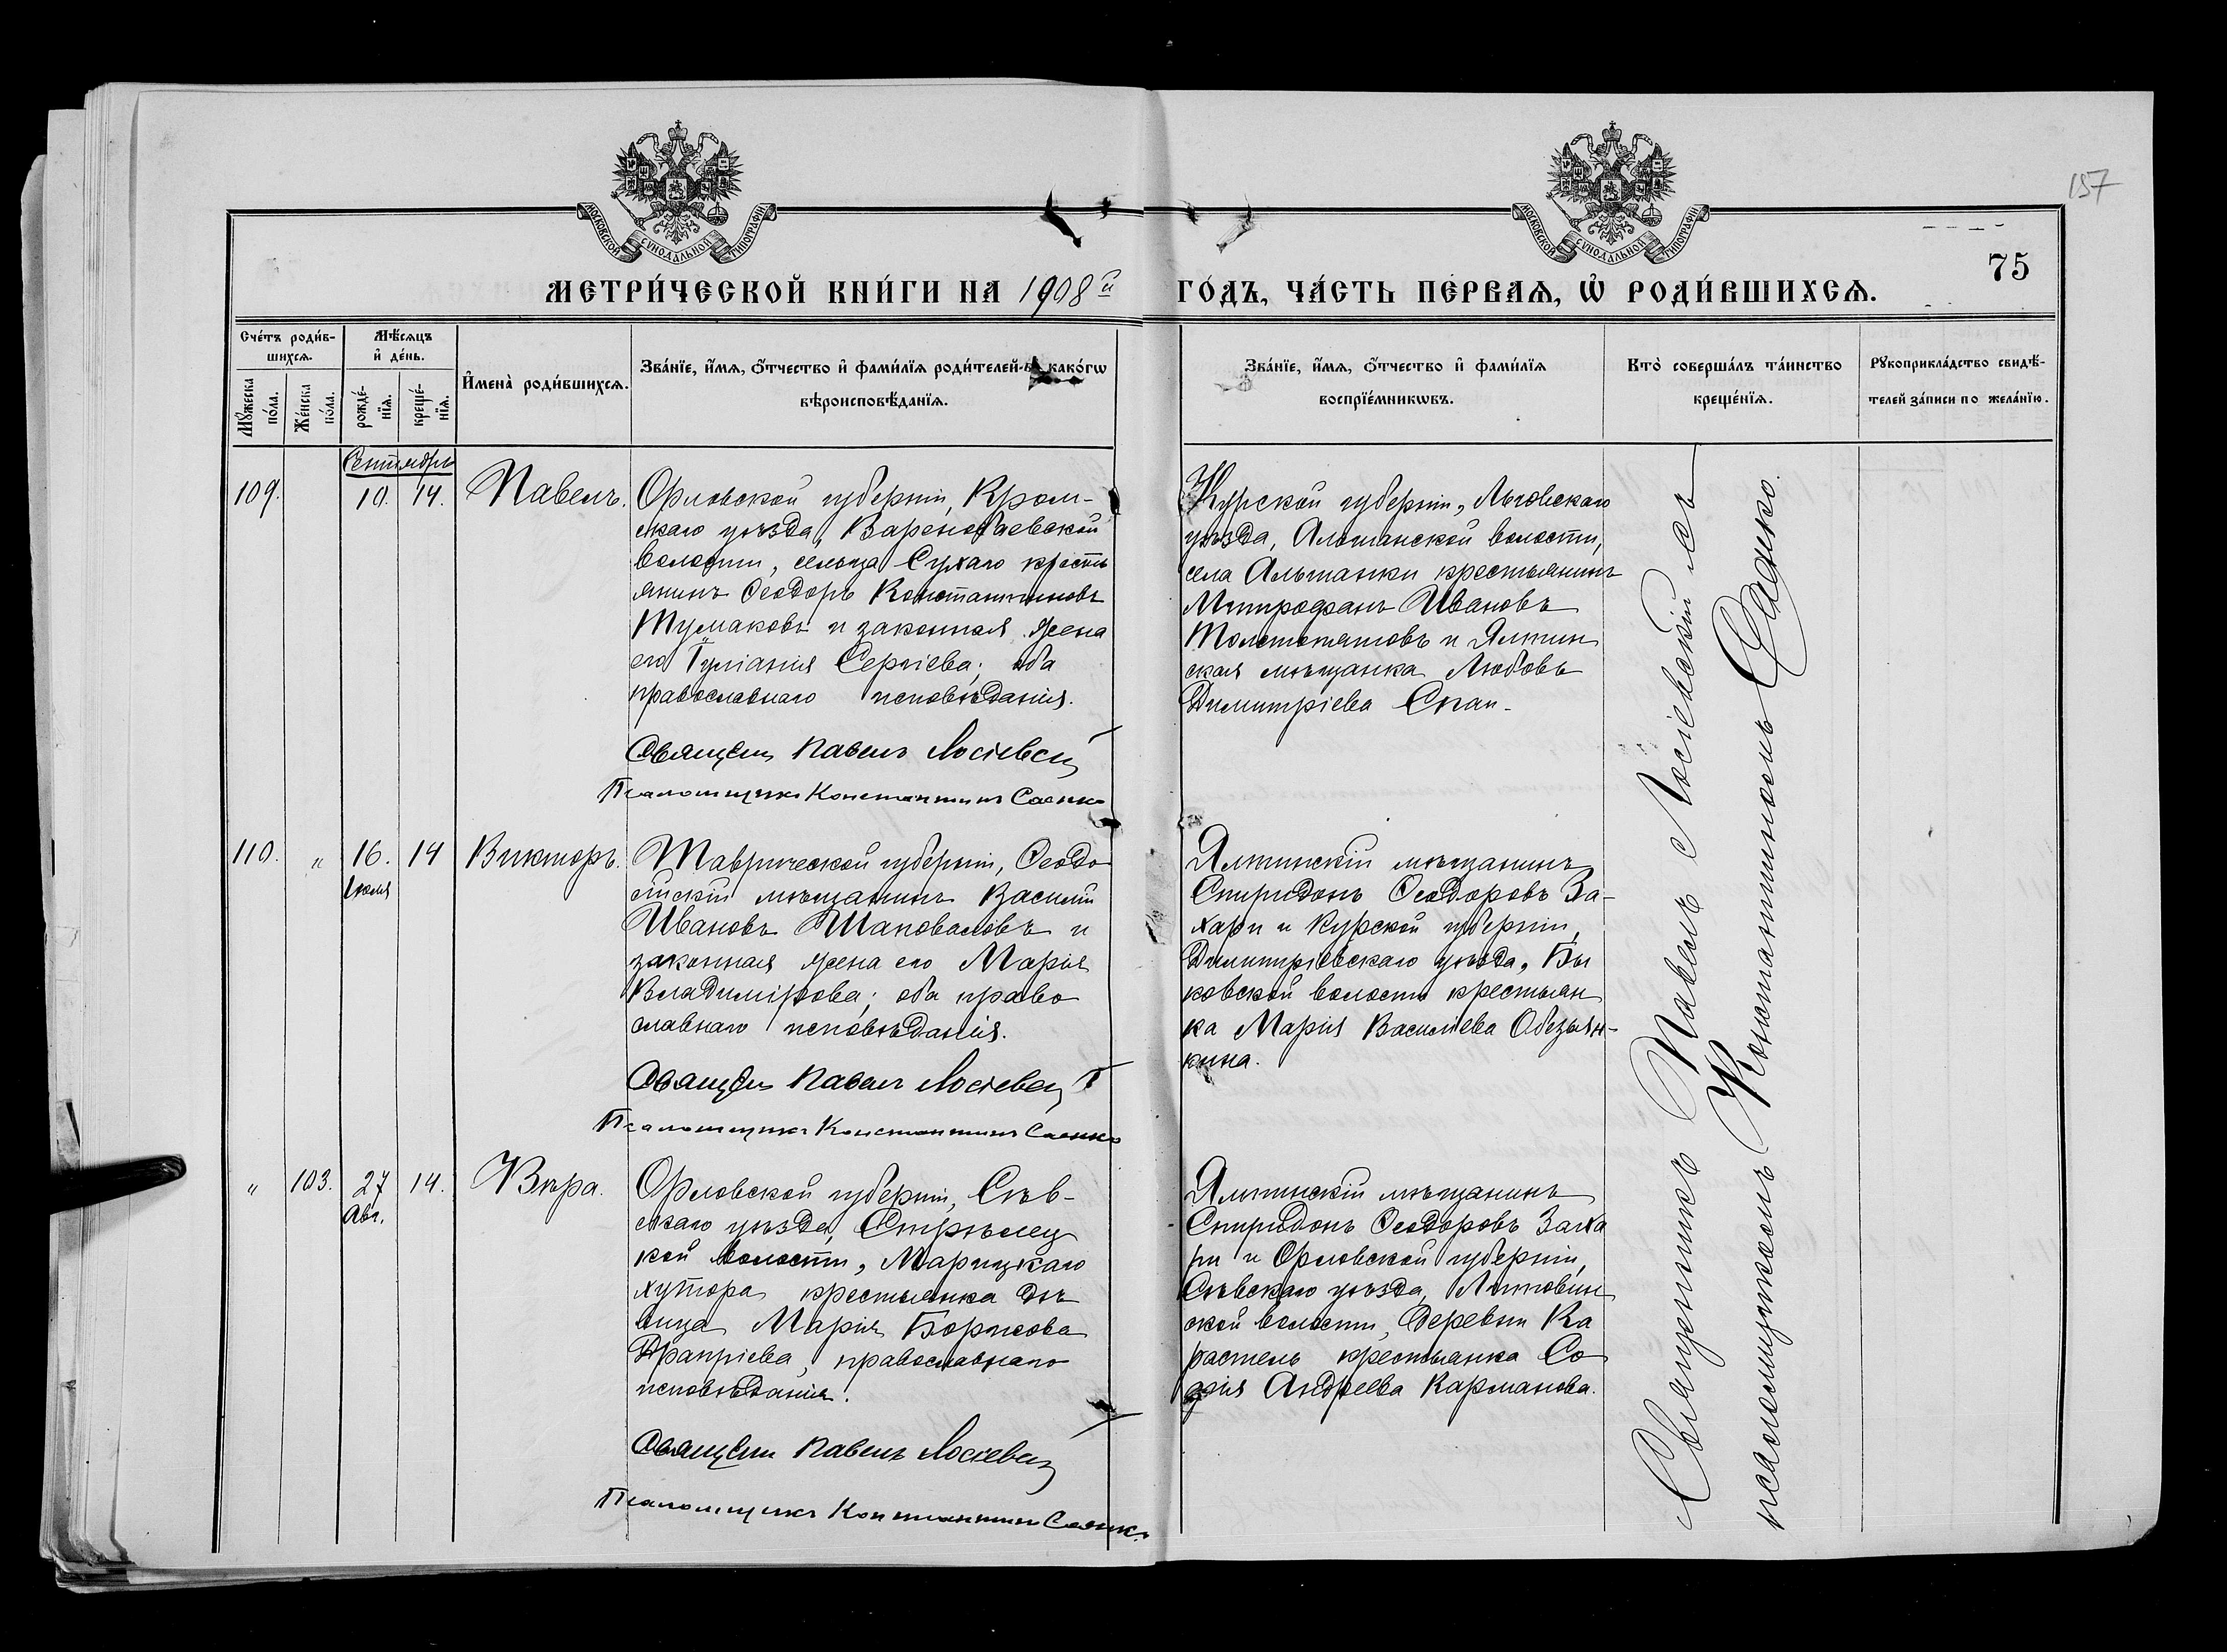 МОСКОВСКОЙ СѴНОДАЛЬНОЙ ТИПОГРАФІИ
МОСКОВСКОЙ СѴНОДАЛЬНОЙ ТИПОГРАФІИ
157
75
МЕТРИ́ЧЕСКОЙ КНИ́ГИ НА 1908й ГО́ДЪ, ЧА́СТЬ ПЕ́РВАѦ, Ѡ҆ РОДИ́ВШИХСѦ.
Сче́тъ роди́в-
шихсѧ.
Мꙋ́жеска
по́ла.
Же́нска
по́ла.
Мѣ́сѧцъ
и҆ де́нь.
рожде́-
нїѧ.
креще́-
нїѧ.
И҆мена̀ роди́вшихсѧ.
Зва́нїе, и҆́мѧ, ѻ҆́тчество и҆ фами́лїѧ роди́телей како́гѡ
вѣроисповѣ́данїѧ.
Зва́нїе, и҆́мѧ, ѻ҆́тчество и҆ фами́лїѧ
воспрїе́мникѡвъ.
Кто̀ соверша́лъ та́инство
креще́нїѧ.
Рꙋкоприкла́дство свидѣ́-
телей за́писи по жела́нїю.
Сентябрь
109. 10. 14. Павелъ.
Орловской губерніи, Кром-
скаго уѣзда,
волости, сельца Сухаго кресть
янинъ Ѳеодоръ Константиновъ
Тулмаковъ и законная жена
его Іуліанія Сергіева; оба
православнаго исповѣданія.
Священ Павелъ Лосіевскій
Псаломщикъ Константинъ Саенко
Курской губерніи, Льговскаго
уѣзда, Альшанской волости,
села Альшанки крестьянинъ
Митрофанъ Ивановъ
Толстопятовъ и Ялтин
ская мѣщанка Любовь
Димитріева
110. " 16. 14 Викторъ.
Іюля
Таврической губерніи, Ѳеодо
сійскій мѣщанинъ Василій
Ивановъ Шаповаловъ и
законная жена его Марія
Владимірова; оба право
славнаго исповѣданія.
Священ Павелъ Лосіевскій
Псаломщикъ Константинъ Саенко
Ялтинскій мѣщанинъ
Спиридонъ Ѳеодоровъ За-
хари и Курской губерніи,
Димитріевскаго уѣзда, Бы
ковской волости крестьян
ка Марія Василіева Обезьян-
кина.
" 103. 27 14. Вѣра.
Авг.
Орловской губерніи, Сѣв-
скаго уѣзда, Стрѣлец
кой волости, Марицкаго
хутора крестьянка дѣ
вица Марія Борисова
православнаго
исповѣданія.
Священ Павелъ Лосіевскій
Псаломщикъ Константинъ Саенко
Ялтинскій мѣщанинъ
Спиридонъ Ѳеодоровъ Заха
ри и Орловской губерніи,
Сѣвскаго уѣзда, Литовин
ской волости, деревни Ка
растель крестьянка Со
фія Андреева Карманова.
Священникъ Павелъ Лосіевскій съ
псаломщикомъ Константиномъ Саенко.